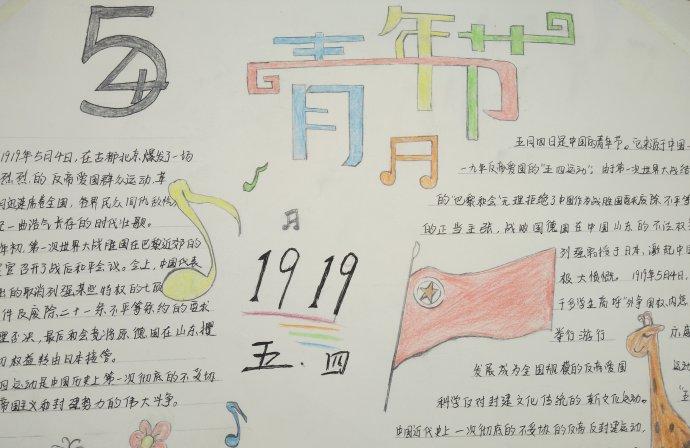 54
青年节
1919年5月4日，在古都北京，爆发了一场
烈烈的反帝爱国群众运动，革
迅速席卷全国，各界民众
一曲浩气长存的时代壮歌。
年初，第一次世界大战胜国在巴黎近郊的
宫召开了战后和平会议。会上，中国代表
出的取消列强某些特权的七
件及废除二十一条不平等条约的要求
理否决，最后和会竟将原德国在山东攫
切权益转由日本接管。
四运动是中国历史上第一次彻底的不妥协
帝国主义和封建势力的伟大斗争。
1919
五.四
五月四日是中国的青年节。它来源于中国一
一九年反帝爱国的"五四运动"，由于第一次世界大战结
的"巴黎和会"无理拒绝了中国作为战胜国要求废除不平等
的正当主张，战败国德国在中国山东的不法权
列强转授于日本，激起中国
极大愤慨。1919年5月4日，
于多学生高呼"外争国权、内惩
举行游行
发展成为全国规模的反帝爱国
运动
科学反对封建文化传统的新文化运动。
"五
中国近代史上一次彻底的不妥协的反帝反封建运动，